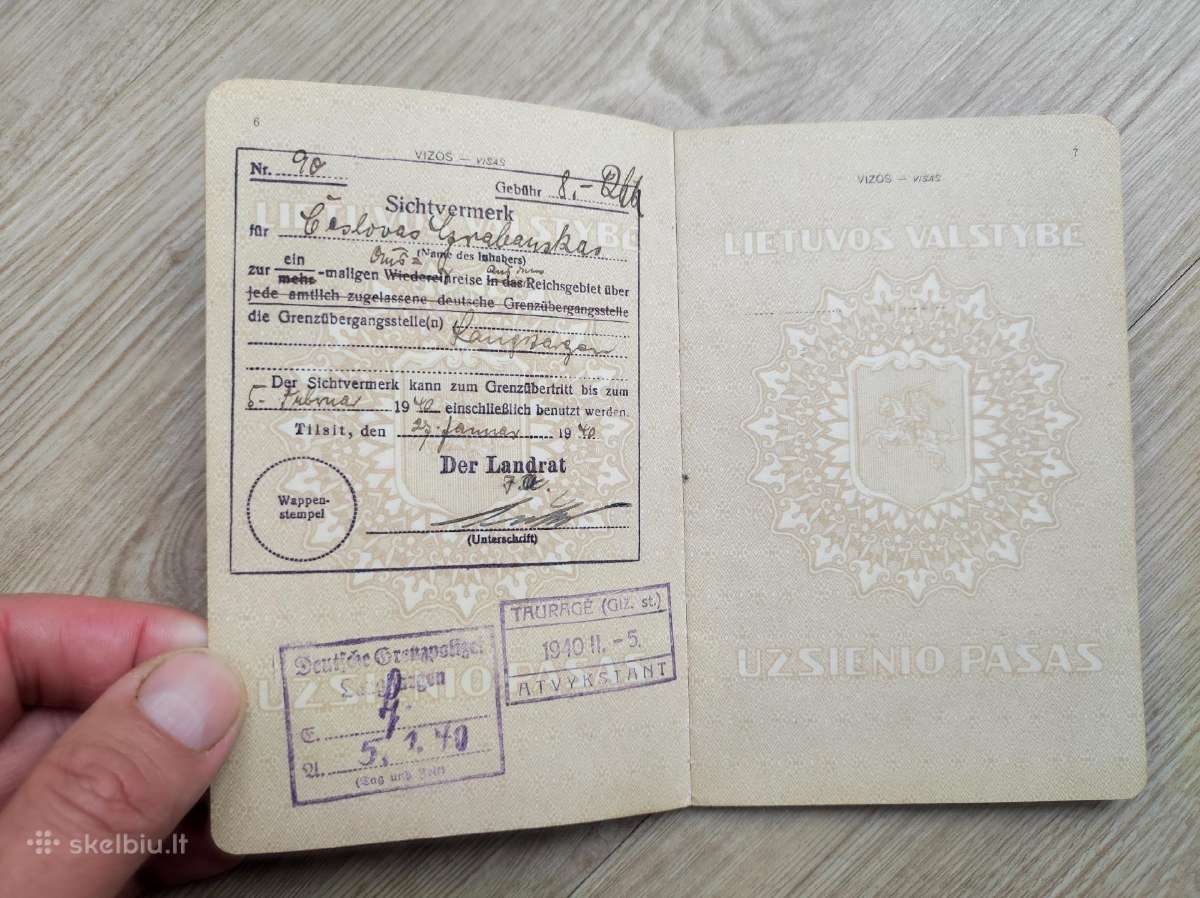 6
VIZOS — VISAS
Nr. 90
Gebühr 8.-
Sichtvermerk
für Česlovas Grabauskas
(Name des Inhabers)
ein Aus=
zur mehr-maligen Wiedereinreise in das Reichsgebiet über
jede amtlich zugelassene deutsche Grenzübergangsstelle
die Grenzübergangsstelle(n) Laugszargen
Der Sichtvermerk kann zum Grenzübertritt bis zum
5. Februar 1940 einschließlich benutzt werden.
Tilsit, den 27. Januar 1940
Der Landrat
(Unterschrift)
Wappen-
stempel
TAURAGĖ (Glž. st.)
1940 II. - 5.
ATVYKSTANT
Deutsche Grenzpolizei
Laugszargen
E.
A. 5. 2. 40
(Tag und Zeit)
UŽSIENIO PASAS
7
VIZOS — VISAS
LIETUVOS VALSTYBĖ
UŽSIENIO PASAS
skelbiu.lt